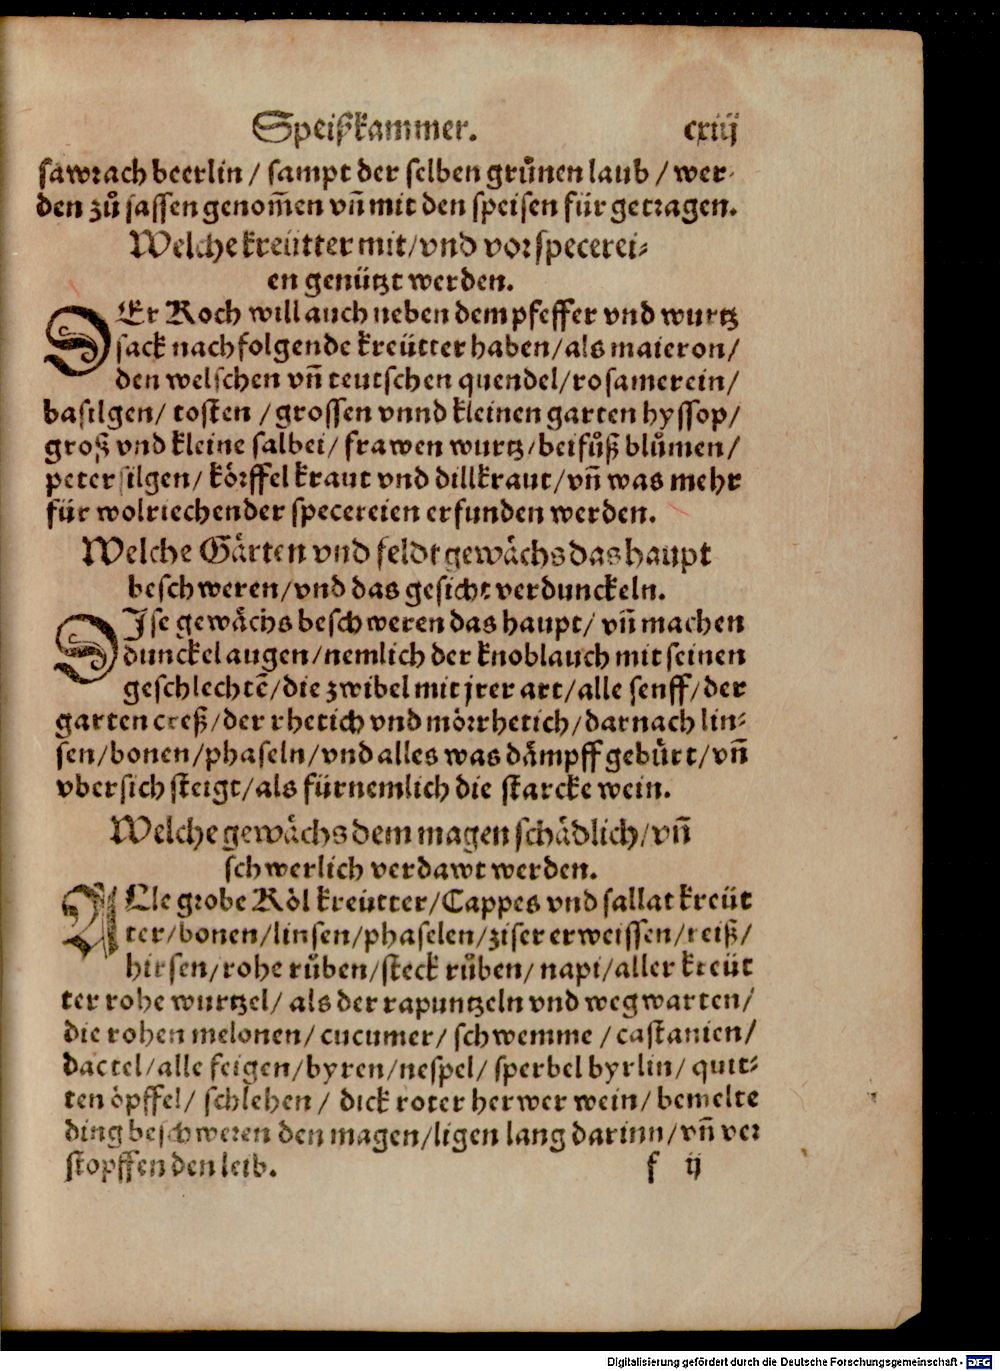 Speißkammer. cxiij
sawrach beerlin / sampt der selben grůnen laub / wer-
den zů sassen genom̃en vñ mit den speisen für getragen.
Welche kreütter mit/vnd vor specerei-
en genützt werden.
DEr Koch will auch neben dem pfeffer vnd wurtz
sack nachfolgende kreütter haben/als maieron/
den welschen vñ teutschen quendel/rosamerein/
basilgen/ tosten /grossen vnnd kleinen garten hyssop/
groß vnd kleine salbei/ frawen wurtz/beifůß blůmen/
petersilgen/ körffel kraut vnd dillkraut/vñ was mehr
für wolriechender specereien erfunden werden.
Welche Gärten vnd feldtgewächs das haupt
beschweren/vnd das gesicht verdunckeln.
DIse gewächs beschweren das haupt/ vñ machen
dunckel augen/nemlich der knoblauch mit seinen
geschlechtẽ/die zwibel mit jrer art/alle senff/der
garten creß/der rhetich vnd mörrhetich/darnach lin-
sen/bonen/phaseln/vnd alles was dämpff gebürt/vñ
vbersich steigt/als fürnemlich die starcke wein.
Welche gewächs dem magen schädlich/vñ
schwerlich verdawt werden.
ALle grobe Köl kreütter/Cappes vnd sallat kreüt
ter/bonen/linsen/phaselen/ziser erweissen/reiß/
hirsen/rohe růben/steck růben/ napi/aller kreüt
ter rohe wurtzel/ als der rapuntzeln vnd wegwarten/
die rohen melonen/ cucumer/ schwemme / castanien/
dactel/alle feigen/byren/nespel/ sperbel byrlin/ quit-
ten öpffel/ schlehen / dick roter herwer wein/ bemelte
ding beschweren den magen/ligen lang darinn/vñ ver
stopffen den leib. f ij
Digitalisierung gefördert durch die Deutsche Forschungsgemeinschaft - DFG